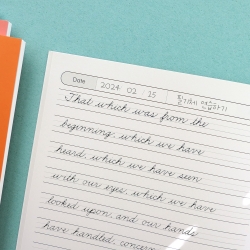 Date 2024 02 15 필기체 연습하기
That which was from the
beginning, which we have
heard, which we have seen
with our eyes, which we have
looked upon, and our hands
have handled, concern